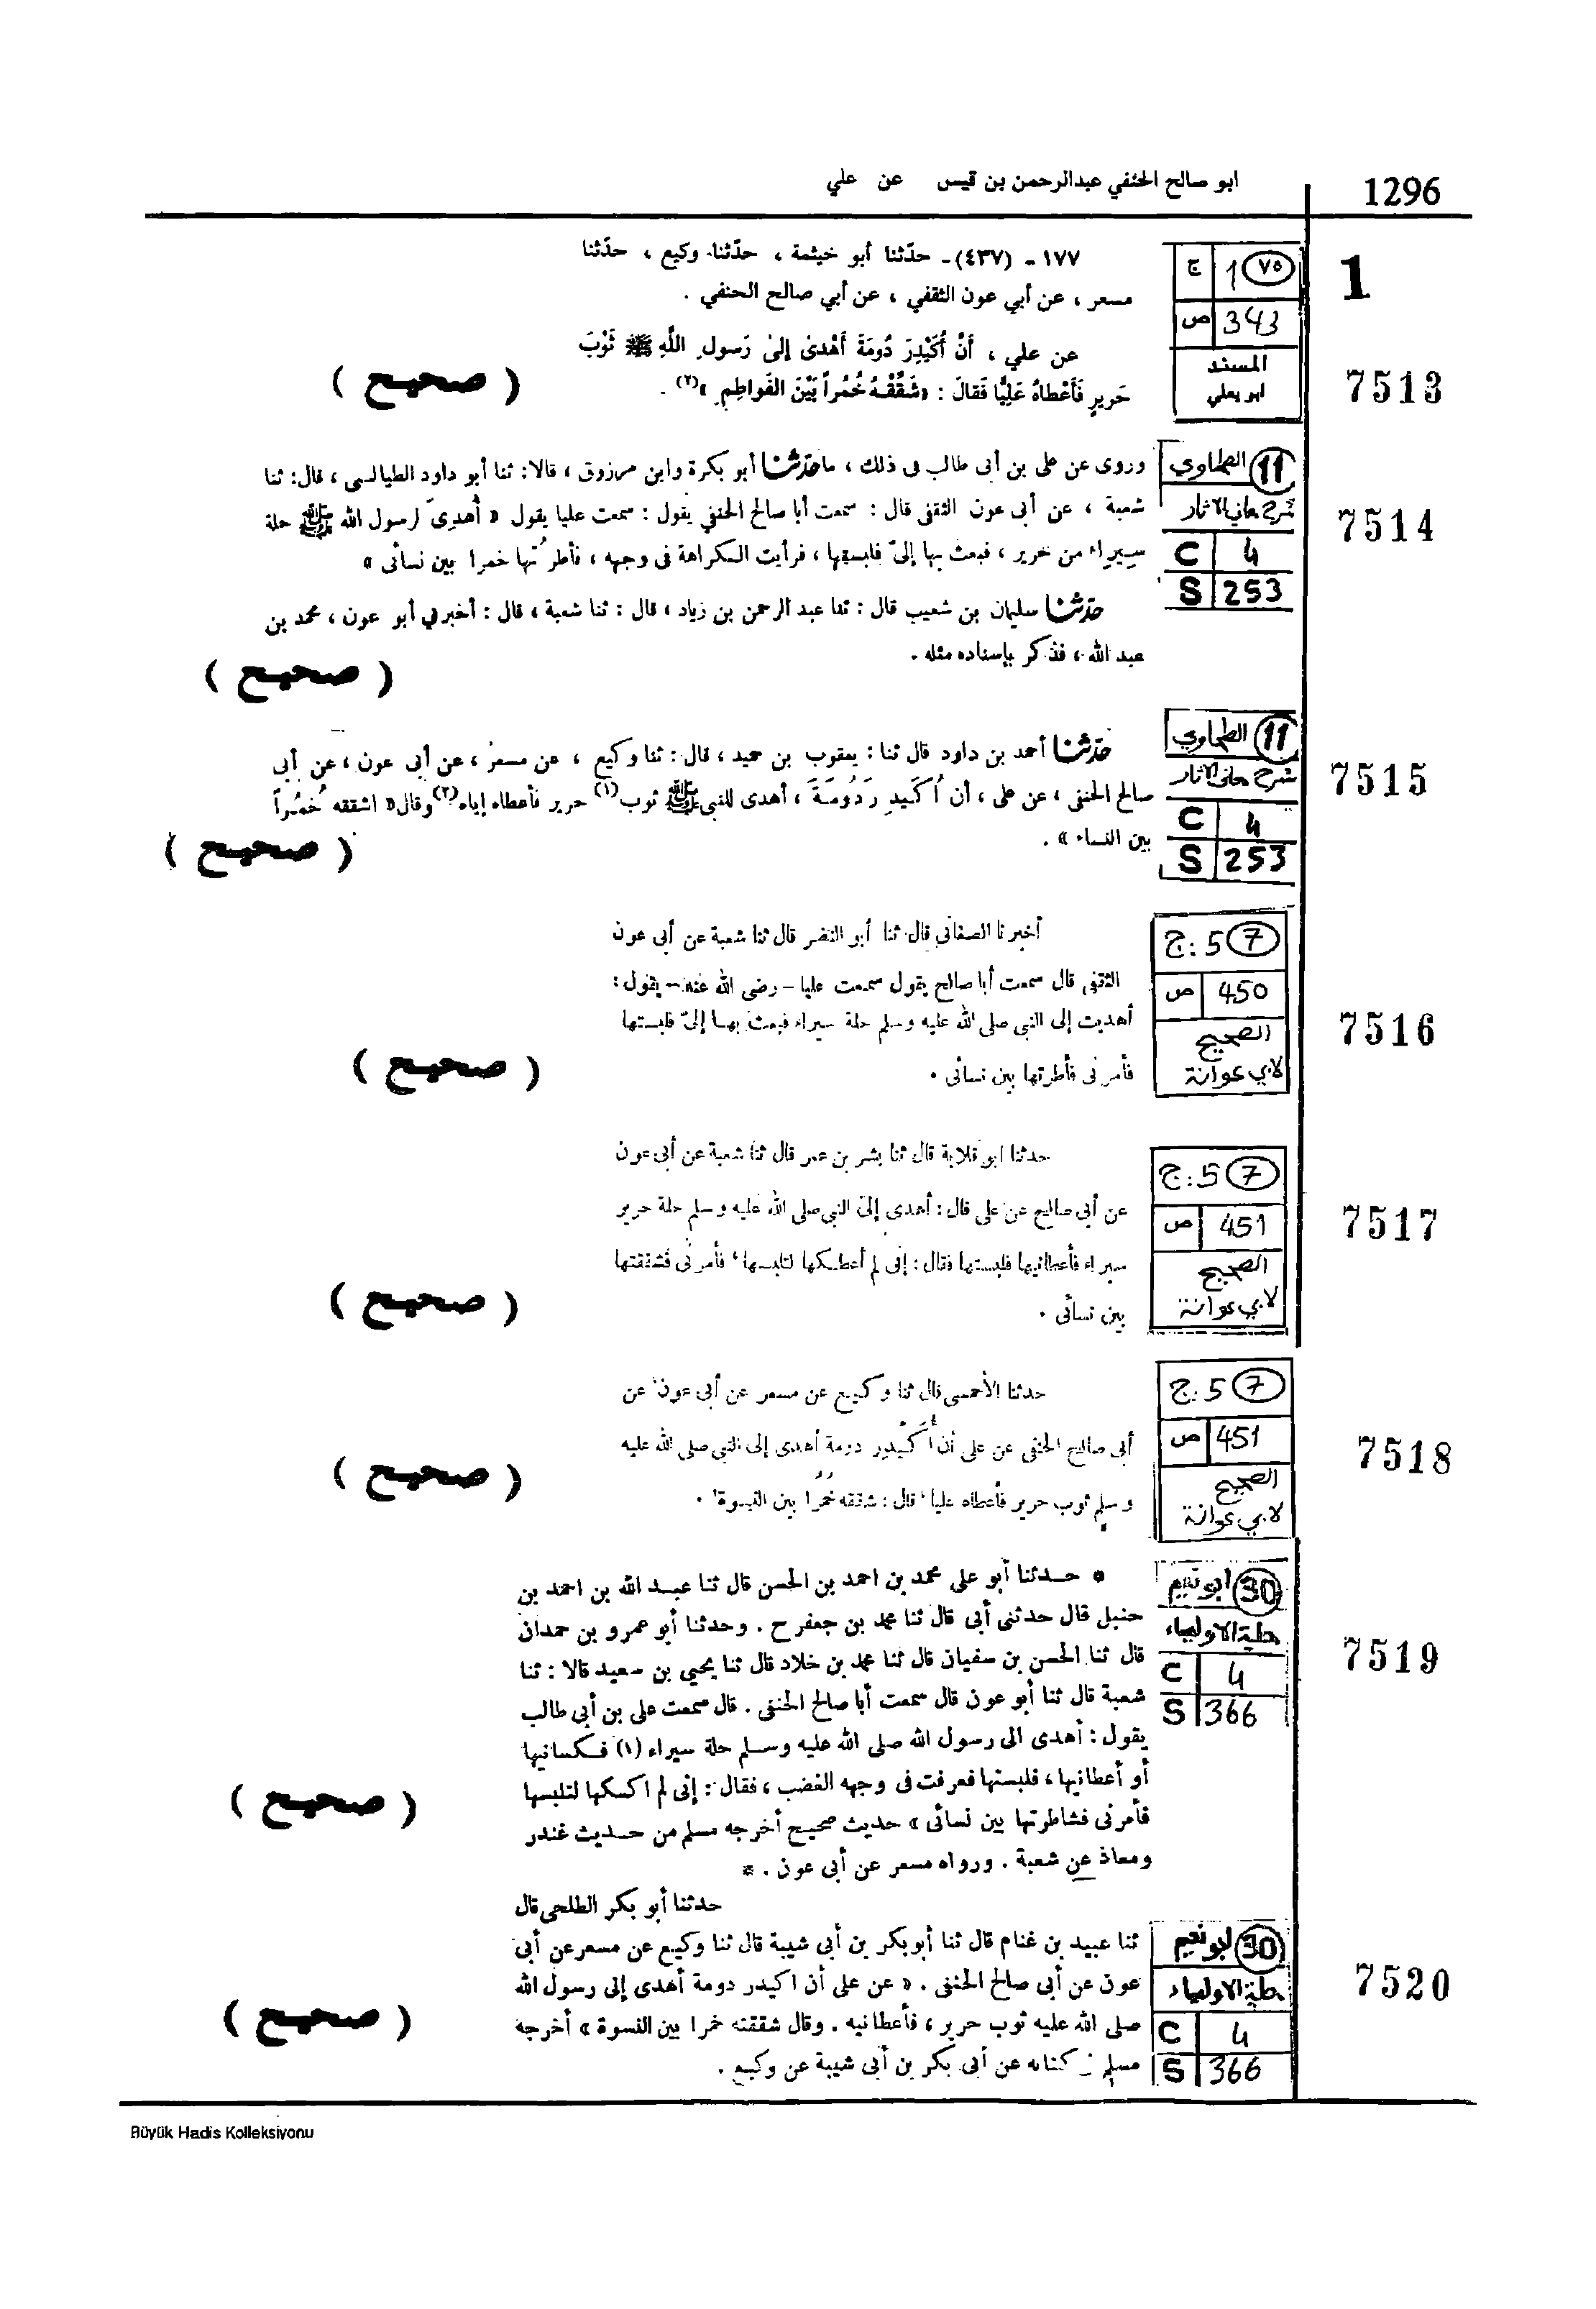 1296
ابو صالح الحنفي عبدالرحمن بن قيس عن علي
1
ج 1 ٧٥
ص 343
المسند
ابو يعلي
7513
١٧٧ - (٤٣٧) - حدّثنا أبو خيثمة ، حدّثنا وكيع ، حدّثنا
مسعر ، عن أبي عون الثقفي ، عن أبي صالح الحنفي .
عن علي ، أَنَّ أُكَيْدِرَ دُومَةَ أَهْدىٰ إلىٰ رَسولِ اللَّهِ ﷺ ثَوْبَ
حَريرٍ فَأَعْطاهُ عَلِيًّا فَقالَ : «شَقِّقْهُ خُمُراً بَيْنَ الفَواطِمِ »(٢) .
( صحيح )
11 الطحاوي
شرح معاني الاثار
C 4
S 253
7514
وروى عن على بن أبى طالب فى ذلك ، ما حدّثنا أبو بكرة وابن مرزوق ، قالا: ثنا أبو داود الطيالسى ، قال: ثنا
شعبة ، عن أبى عون الثقفى قال : سمعت أبا صالح الحنفي يقول : سمعت عليا يقول « أُهدِىَ لرسول الله ﷺ حلة
سِيراء من حرير ، فبعث بها إلىّ فلبستها ، فرأيت الكراهة فى وجهه ، فأطرتُها خمرا بين نسائى »
حدّثنا سليمان بن شعيب قال : ثنا عبد الرحمن بن زياد ، قال : ثنا شعبة ، قال : أخبرني أبو عون ، محمد بن
عبد الله ، فذكر بإسناده مثله .
( صحيح )
11 الطحاوي
شرح معانى الاثار
C 4
S 253
7515
حدّثنا أحمد بن داود قال ثنا : يعقوب بن حميد ، قال : ثنا وكيع ، عن مسعر ، عن أبى عون ، عن أبى
صالح الحنفى ، عن على ، أن أُكَيدِرَ دُومَةَ ، أهدى للنبى ﷺ ثوب(١) حرير فأعطاه إياه(٢) وقال « اشققه خُمُراً
بين النساء » .
( صحيح )
7 5 :ج
ص 450
الصحيح
لابي عوانة
7516
أخبرنا الصغانى قال ثنا أبو النضر قال ثنا شعبة عن أبى عون
الثقفى قال سمعت أبا صالح يقول سمعت عليا – رضى الله عنه – يقول :
أهديت إلى النبى صلى الله عليه وسلم حلة سيراء فبعث بها إلىّ فلبستها
فأمرنى فأطرتها بين نسائى .
( صحيح )
7 5 :ج
ص 451
الصحيح
لابي عوانة
7517
حدثنا ابو قلابة قال ثنا بشر بن عمر قال ثنا شعبة عن أبى عون
عن أبى صالح عن على قال : أهدى إلى النبى صلى الله عليه وسلم حلة حرير
سيراء فأعطانيها فلبستها فقال : إنى لم أعطكها لتلبسها ، فأمرنى فشققتها
بين نسائى .
( صحيح )
7 5 :ج
ص 451
الصحيح
لابي عوانة
7518
حدثنا الأحمسى قال ثنا وكيع عن مسعر عن أبى عون عن
أبى صالح الحنفى عن على أن أُكَيدِر دومة أهدى إلى النبى صلى الله عليه
وسلم ثوب حرير فأعطاه عليا ، قال : شققه خُمُرا بين النسوة .
( صحيح )
30 ابو نعيم
حلية الاولياء
C 4
S 366
7519
* حدثنا أبو على محمد بن احمد بن الحسن قال ثنا عبد الله بن احمد بن
حنبل قال حدثنى أبى قال ثنا محمد بن جعفر ح . وحدثنا أبو عمرو بن حمدان
قال ثنا الحسن بن سفيان قال ثنا محمد بن خلاد قال ثنا يحيى بن سعيد قالا : ثنا
شعبة قال ثنا أبو عون قال سمعت أبا صالح الحنفى . قال سمعت على بن أبى طالب
يقول : أهدى الى رسول الله صلى الله عليه وسلم حلة سيراء (١) فكسانيها
أو أعطانيها ، فلبستها فعرفت فى وجهه الغضب ، فقال : إنى لم أكسكها لتلبسها
فأمرنى فشاطرتها بين نسائى » حديث صحيح أخرجه مسلم من حديث غندر
ومعاذ عن شعبة . ورواه مسعر عن أبى عون . *
( صحيح )
30 ابو نعيم
حلية الاولياء
C 4
S 366
7520
حدثنا أبو بكر الطلحى قال
ثنا عبيد بن غنام قال ثنا أبو بكر بن أبى شيبة قال ثنا وكيع عن مسعر عن أبى
عون عن أبى صالح الحنفى . « عن على أن اكيدر دومة أهدى إلى رسول الله
صلى الله عليه ثوب حرير ، فأعطانيه . وقال شققته خمرا بين النسوة » أخرجه
مسلم كتابه عن أبى بكر بن أبى شيبة عن وكيع .
( صحيح )
Büyük Hadis Kolleksiyonu